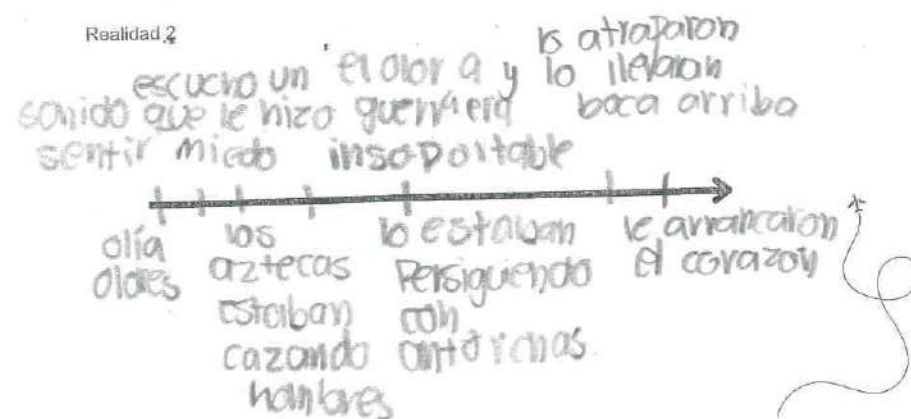 Realidad 2
escucho un
sonido que le hizo
sentir miedo
el olor a
guerra era
insoportable
y lo atraparon
lo llebaron
boca arriba
olía
olores
los
aztecas
estaban
cazando
hombres
lo estaban
persiguiendo
con
antorchas.
le arrancaron
el corazón